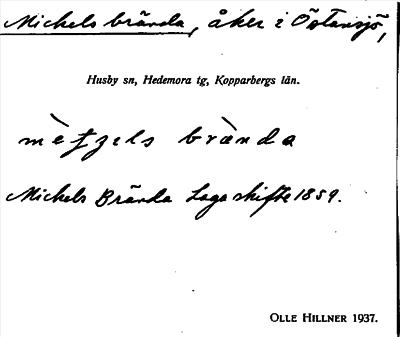 Michels brända, åker i Östansjö,
Husby sn, Hedemora tg, Kopparbergs län.
brànda
Michels Brända Laga skifte 1859.
OLLE HILLNER 1937.